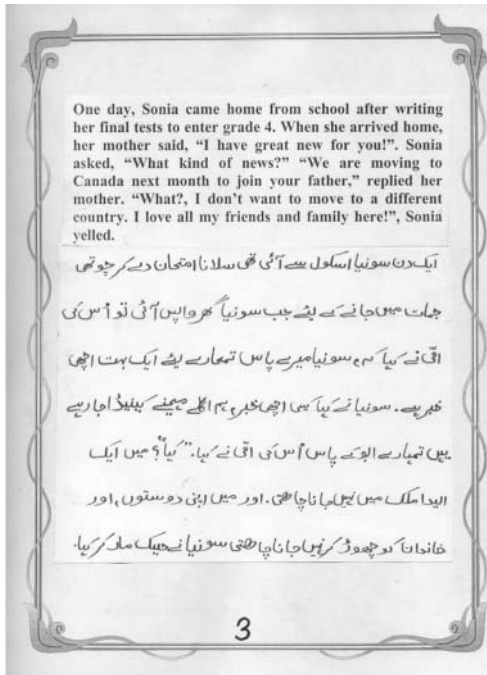 One day, Sonia came home from school after writing
her final tests to enter grade 4. When she arrived home,
her mother said, “I have great new for you!”. Sonia
asked, “What kind of news?” “We are moving to
Canada next month to join your father,” replied her
mother. “What?, I don’t want to move to a different
country. I love all my friends and family here!”, Sonia
yelled.
ایک دن سونیا اسکول سے آئی تھی سلانا امتحان دے کر چوتھی
جمات میں جانے کے لئے جب سونیا گھر واپس آئی تو اُس کی
امّی نے کہا کہ، سونیا میرے پاس تمھارے لیئے ایک بہت اچھی
خبر ہے۔ سونیا نے کہا کیسی اچھی خبر، ہم اگلے مہینے کینیڈا جا رہے
ہیں تمہارے ابو کے پاس اُس کی امّی نے کہا۔ "کیا"؟ میں ایک
الیدا ملک میں نہیں جانا چاھتی۔ اور میں اپنی دوستوں، اور
خاندان کو چھوڑ کر نہیں جانا چاھتی سونیا نے چیک مار کر کہا۔
3